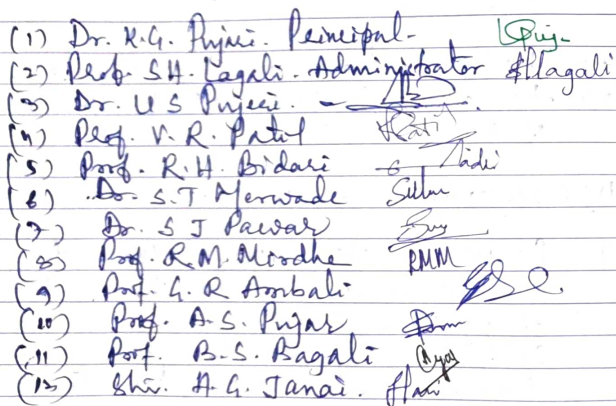 (1) Dr. K.G. Pujari. Principal-
(2) Prof. S.H. Lagali. Administrator SHlagali
(3) Dr. U S Pujari. -
(4) Prof. V. R. Patil Patil
(5) Prof. R.H. Bidari
(6) Dr. S.T Merwade
(7) Dr. S J Pawar
(8) Prof. R.M. Mirdhe RMM
(9) Prof. G. R Ambali
(10) Prof. A.S. Pujar
(11) Prof. B.S. Bagali
(12) Shri. A.G. Janai.